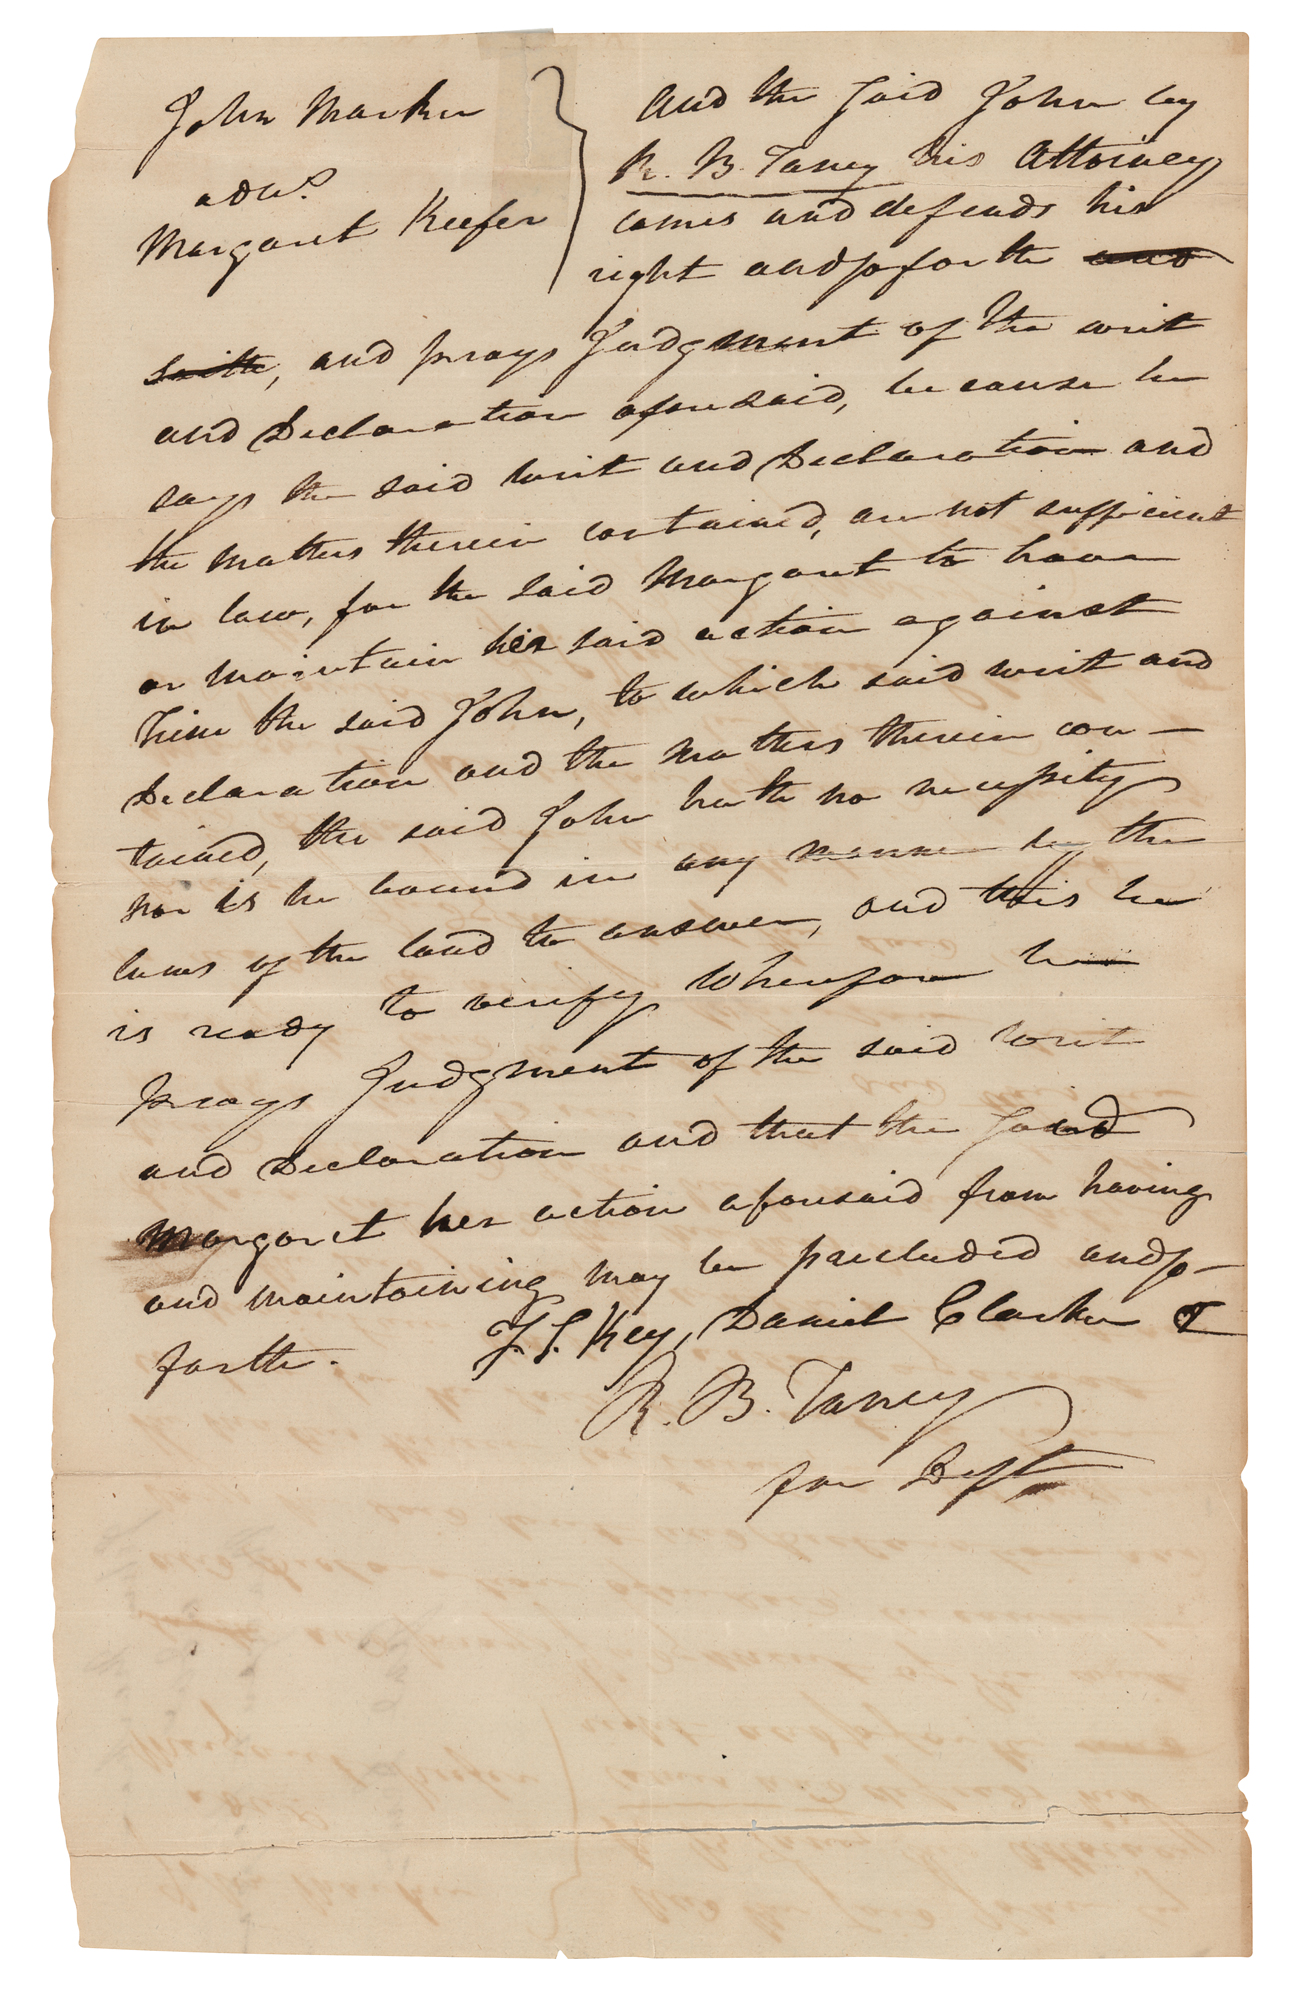 John Marker
ads.
Margaret Keefer
And the said John by
R. B. Taney his Attorney
comes and defends his
right and so forth and
saith, and prays Judgment of the writ
and Declaration aforesaid, because he
says the said writ and Declaration and
the matters therein contained, are not sufficient
in law, for the said Margaret to have
or maintain her said action against
him the said John, to which said writ and
Declaration and the matters therein con-
tained, the said John hath no necessity
nor is he bound in any manner by the
laws of the land to answer, and this he
is ready to verify Wherefore he
prays Judgment of the said writ
and Declaration and that the said
Margaret her action aforesaid from having
and maintaining may be precluded and so
forth.
F. S. Key, Daniel Clarke &
R. B. Taney
for Deft